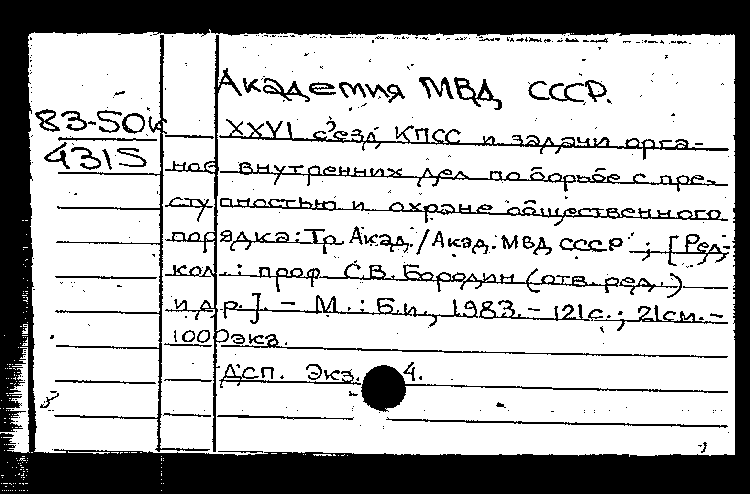 Академия МВД СССР.
83-50к
4315
XXVI съезд КПСС и задачи орга-
нов внутренних дел по борьбе с пре-
ступностью и охране общественного
порядка: Тр. Акад. / Акад. МВД СССР ; [Ред.
кол.: проф. С.В. Бородин (отв. ред.)
и др.]. - М. : Б.и., 1983. - 121 с. ; 21 см. -
1000 экз.
ДСП. Экз. 4.